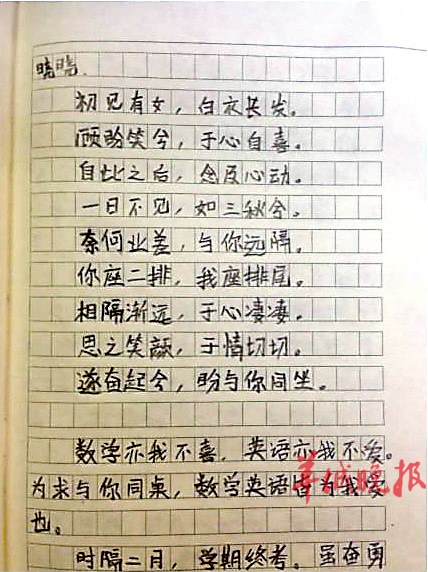 晓晓.
初见有女，白衣长发。
顾盼笑兮，于心自喜。
自此之后，念及心动。
一日不见，如三秋兮。
奈何业差，与你远隔。
你座二排，我座排尾。
相隔渐远，于心凄凄。
思之笑颜，于情切切。
遂奋起兮，盼与你同坐。
数学亦我不喜，英语亦我不爱。
为求与你同桌，数学英语皆为我爱
也。
时隔二月，学期终考。虽奋勇
羊城晚报